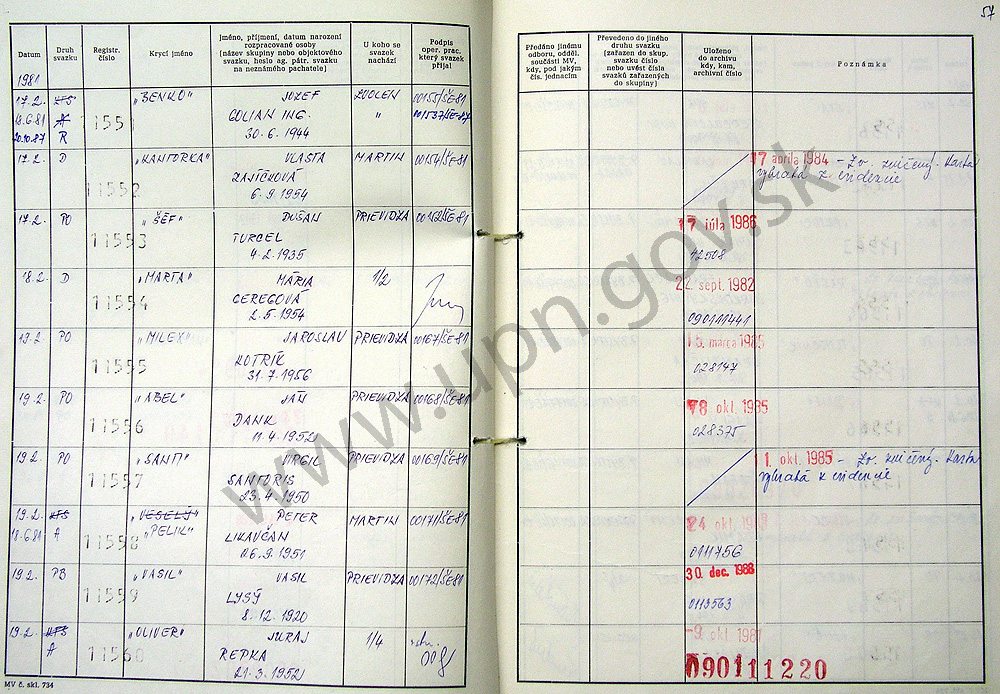 57
Datum
Druh svazku
Registr. číslo
Krycí jméno
Jméno, příjmení, datum narození
rozpracované osoby
(název skupiny nebo objektového
svazku, heslo ag. pátr. svazku
na neznámého pachatele)
U koho se
svazek
nachází
Podpis
oper. prac.
který svazek
přijal
Předáno jinému
odboru, odděl.
součásti MV,
kdy, pod jakým
čís. jednacím
Převedeno do jiného
druhu svazku
(zařazen do skup.
svazku číslo
nebo uvést čísla
svazků zařazených
do skupiny)
Uloženo
do archivu
kdy, kam,
archivní číslo
Poznámka
1981
17.2. KTS „BENKO" JOZEF ZVOLEN 00155/ŠE81
18.6.81 A 11551 GOLIAN ING. " 001537/ŠE-87
20.10.87 R 30.6.1944
17.2. D „KANTORKA" VLASTA MARTIN 00154/ŠE81 17 apríla 1984 - Zv. zničený. Karta
11552 ZAJÍČKOVÁ vybratá z evidencie
6.9.1954
17.2. PO „ŠÉF" DUŠAN PRIEVIDZA 00162/ŠE81 17 júla 1986
11553 TURCEL 12508
4.2.1935
18.2. D „MARTA" MÁRIA 1/2 22 sept. 1982
11554 CEREGOVÁ 090111441
2.5.1954
19.2. PO „MILEX" JAROSLAV PRIEVIDZA 00167/ŠE81 15 marca 1985
11555 KOTRÍK 028147
31.7.1956
19.2. PO „ABEL" JÁN PRIEVIDZA 00168/ŠE81 18 okt. 1985
11556 DANK 028375
11.4.1952
19.2. PO „SANTI" VIRGIL PRIEVIDZA 00169/ŠE81 11. okt. 1985 - Zv. zničený. Karta
11557 SANTORIS vybratá z evidencie
23.4.1950
19.2. KTS „VESELÝ" PETER MARTIN 00171/ŠE81 24 okt.
18.6.81 A 11558 „PELIK" LIKAVČAN 0111756
06.9.1951
19.2. PB „VASIL" VASIL PRIEVIDZA 00172/ŠE81 30. dec. 1988
11559 LYSÝ 0113563
8.12.1920
19.2. KTS „OLIVER" JURAJ 1/4 -9. okt. 1981
A 11560 REPKA 090111220
21.3.1952
MV č. skl. 734
www.upn.gov.sk